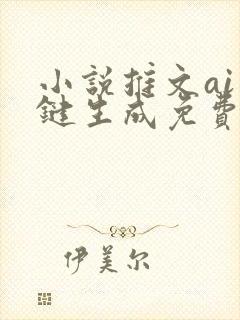 小說推文ai
鍵生成免費
伊美尔